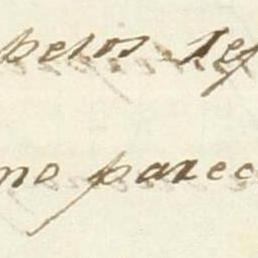 pelos Ref
mo parec